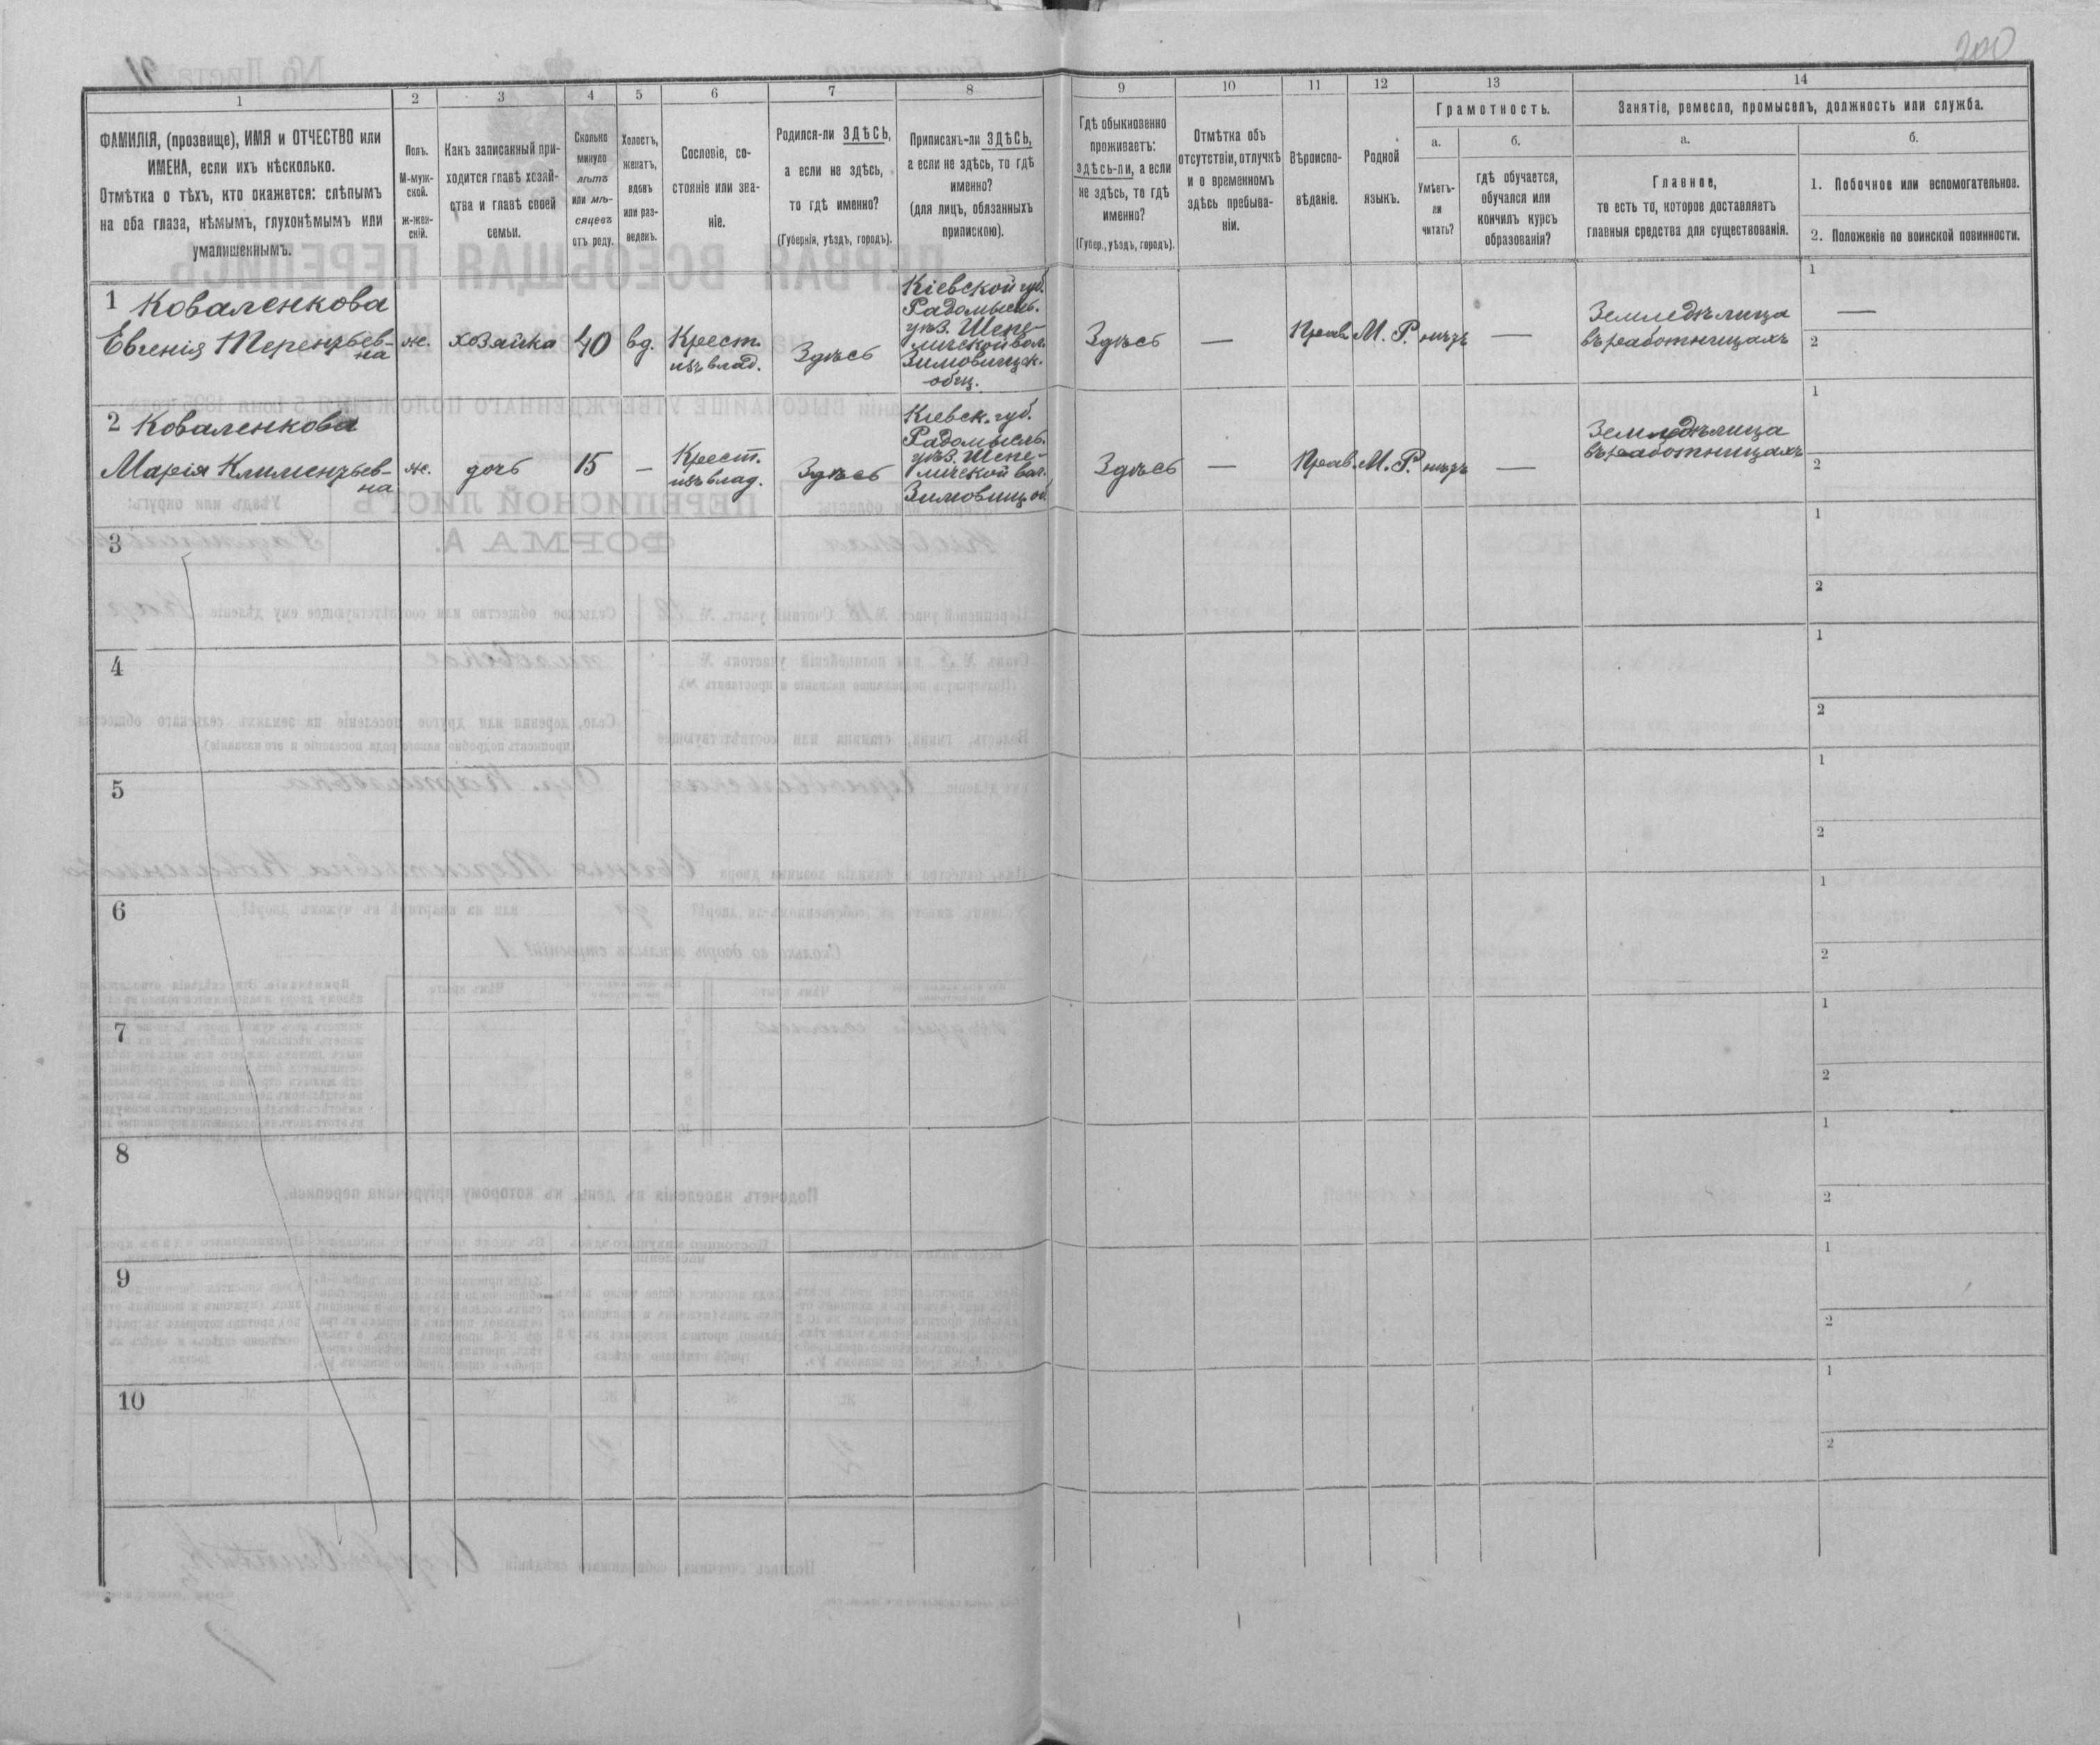 200
1
2
3
4
5
6
7
8
9
10
11
12
13
14
ФАМИЛІЯ, (прозвище), ИМЯ и ОТЧЕСТВО или
ИМЕНА, если ихъ нѣсколько.
Отмѣтка о тѣхъ, кто окажется: слѣпымъ
на оба глаза, нѣмымъ, глухонѣмымъ или
умалишеннымъ.
Полъ.
М-муж-
ской.
Ж-жен-
скій.
Какъ записанный при-
ходится главѣ хозяй-
ства и главѣ своей
семьи.
Сколько
минуло
лѣтъ
или мѣ-
сяцевъ
отъ роду.
Холостъ,
женатъ,
вдовъ
или раз-
веденъ.
Сословіе, со-
стояніе или зва-
ніе.
Родился-ли ЗДѢСЬ,
а если не здѣсь,
то гдѣ именно?
(Губернія, уѣздъ, городъ).
Приписанъ-ли ЗДѢСЬ,
а если не здѣсь, то гдѣ
именно?
(для лицъ, обязанныхъ
припискою).
Гдѣ обыкновенно
проживаетъ:
здѣсь-ли, а если
не здѣсь, то гдѣ
именно?
(Губер., уѣздъ, городъ).
Отмѣтка объ
отсутствіи, отлучкѣ
и о временномъ
здѣсь пребыва-
ніи.
Вѣроиспо-
вѣданіе.
Родной
языкъ.
Грамотность.
а.
Умѣетъ-
ли
читать?
б.
гдѣ обучается,
обучался или
кончилъ курсъ
образованія?
Занятіе, ремесло, промыселъ, должность или служба.
а.
Главное,
то есть то, которое доставляетъ
главныя средства для существованія.
б.
1. Побочное или вспомогательное.
2. Положеніе по воинской повинности.
1 Коваленкова
Евгенія Терентьев-
на
ж.
хозяйка
40
вд.
Крест.
изъ влад.
Здѣсь
Кіевской губ.
Радомысль.
уѣз. Шепе-
личской вол.
Зимовищск.
общ.
Здѣсь
—
Прав.
М. Р.
нѣтъ
—
Земледѣлица
въ работницахъ
1
—
2
2 Коваленкова
Марія Климентьев-
на
ж.
дочь
15
—
Крест.
изъ влад.
Здѣсь
Кіевск. губ.
Радомысль.
уѣз. Шепе-
личской вол.
Зимовищ. об.
Здѣсь
—
Прав.
М. Р.
нѣтъ
—
Земледѣлица
въ работницахъ
1
2
3
1
2
4
1
2
5
1
2
6
1
2
7
1
2
8
1
2
9
1
2
10
1
2